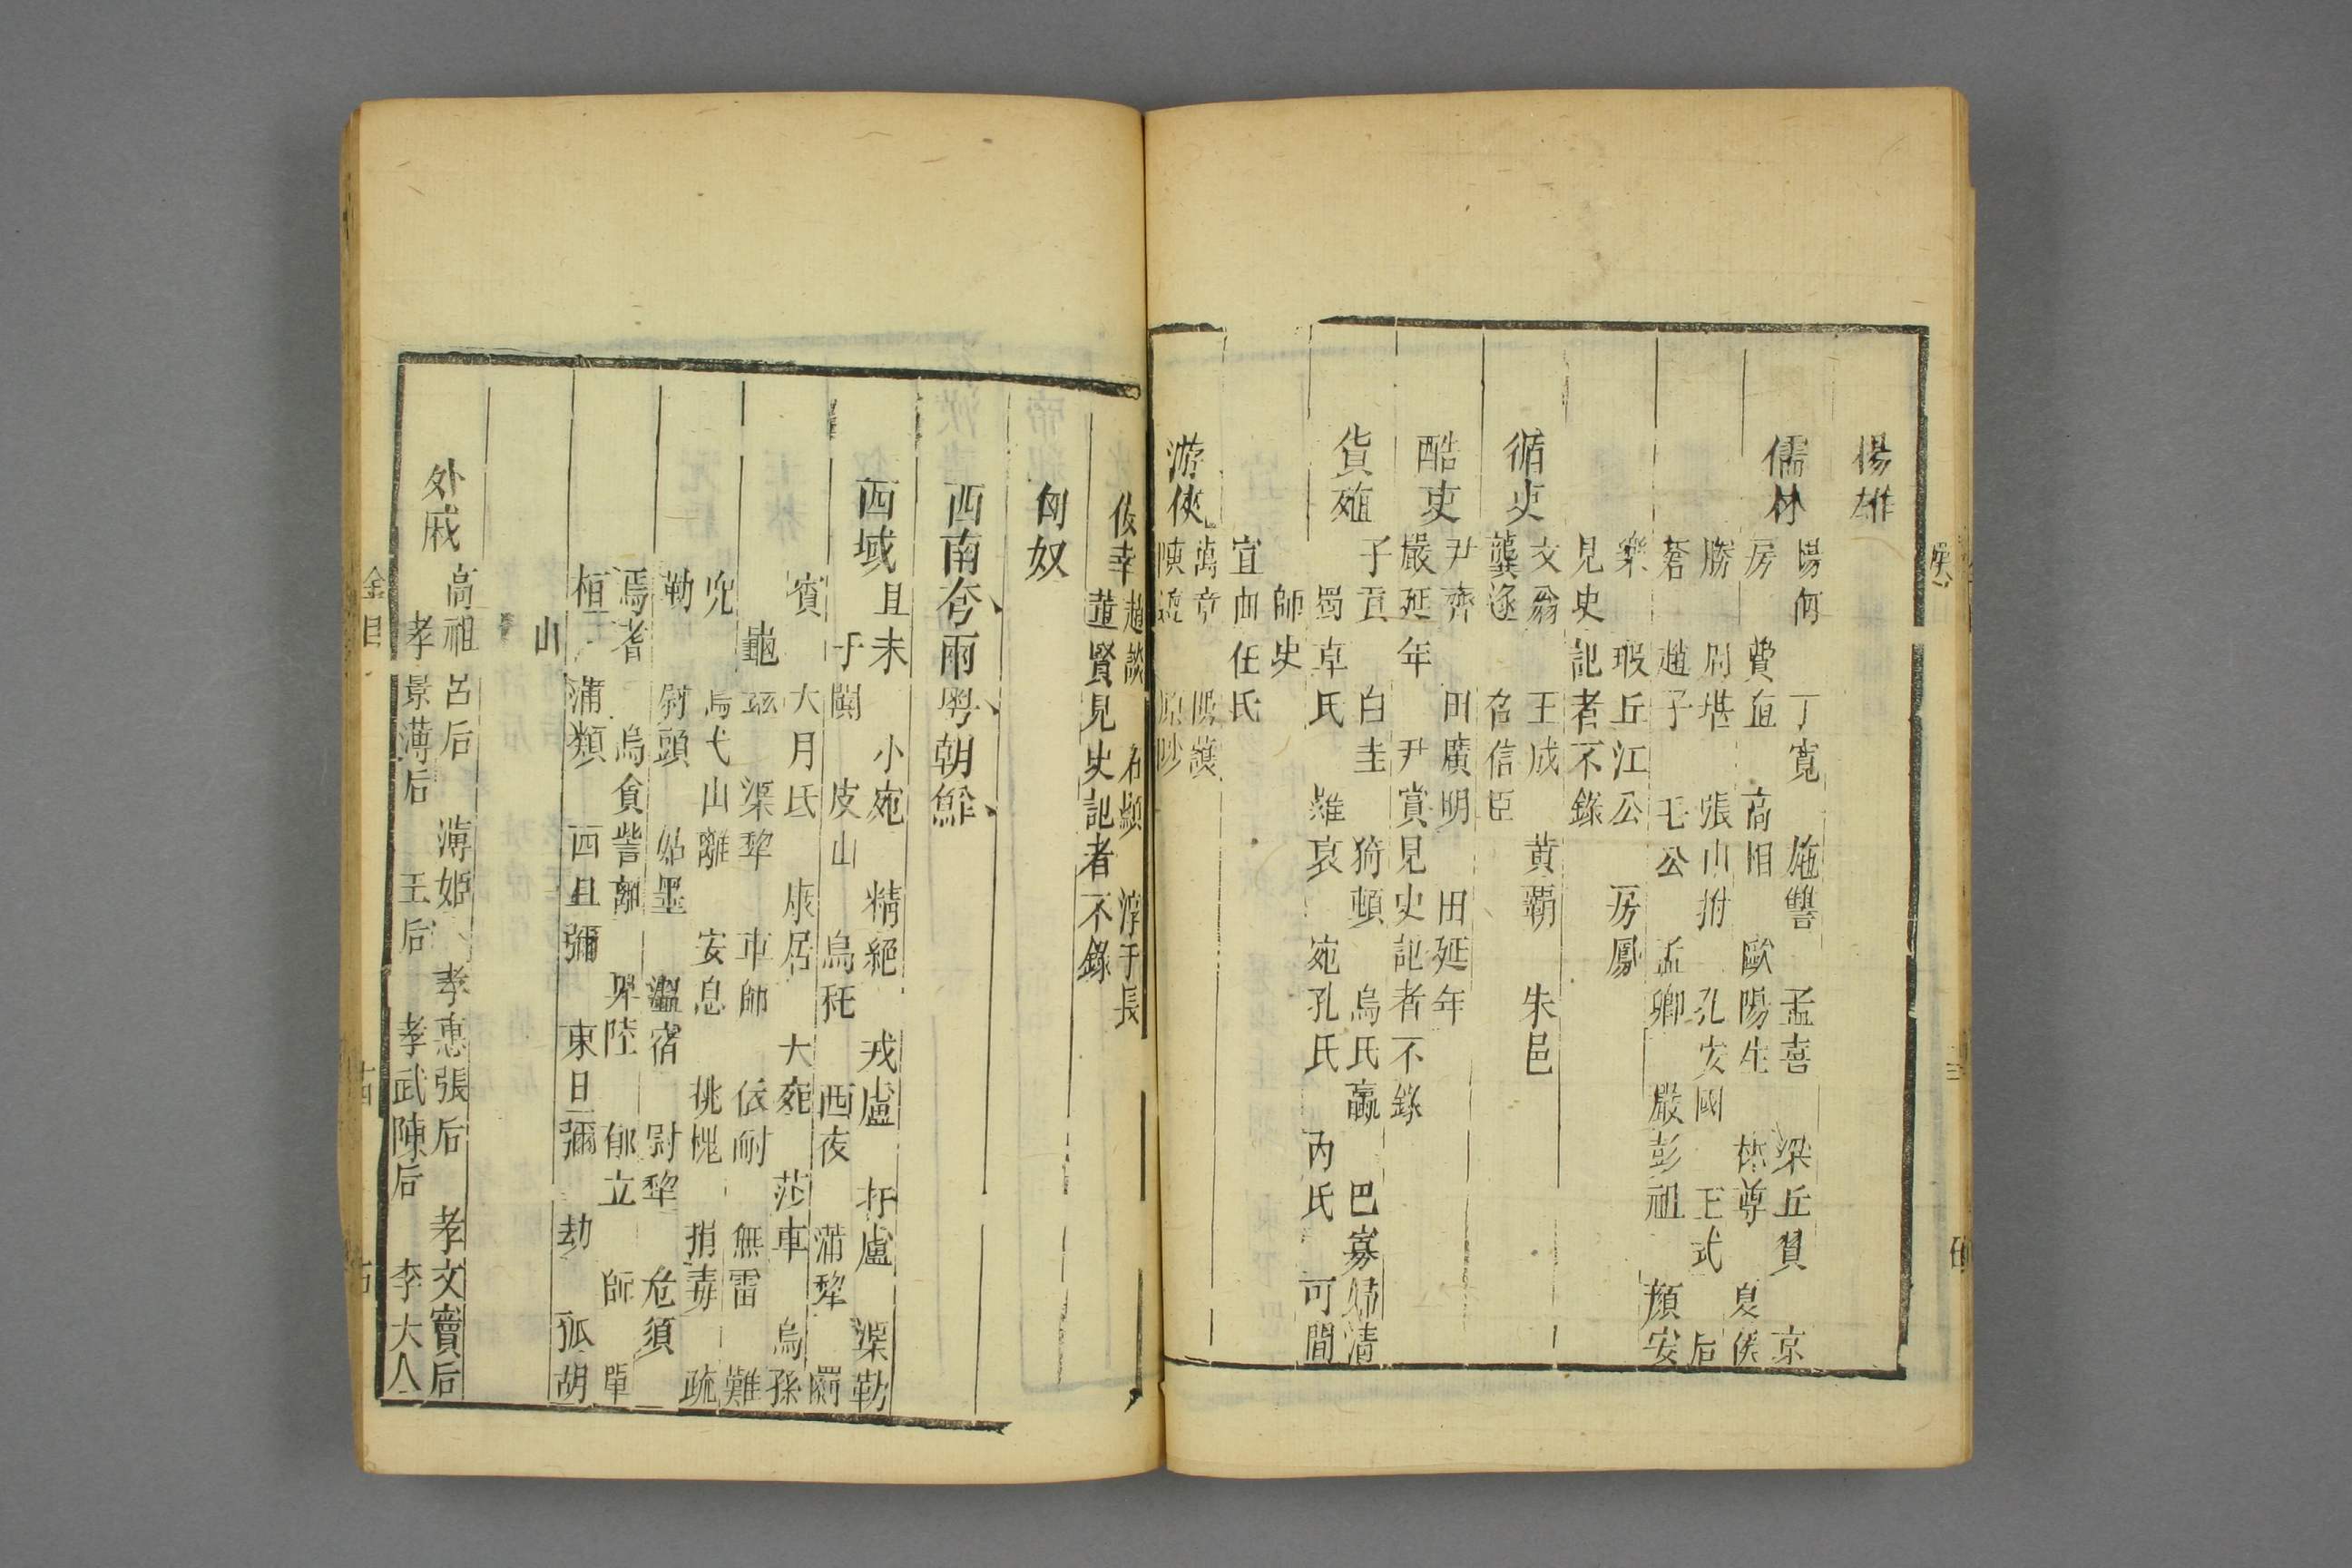 楊雄
儒林
楊何 丁寬 施讐 孟喜 梁丘賀 京
房 費直 高相 歐陽生 林尊 夏侯
勝 周堪 張山拊 孔安國 王式 后
蒼 趙子 毛公 孟卿 嚴彭祖 顔安
樂 瑕丘江公 房鳳
見史記者不錄
循吏
文翁 王成 黄霸 朱邑
龔遂 召信臣
酷吏
尹齊 田廣明 田延年
嚴延年 尹賞見史記者不錄
貨殖
子貢 白圭 猗頓 烏氏蠃 巴寡婦清
蜀卓氏 程鄭 宛孔氏 丙氏 刁間
師史
宣曲任氏
游俠
萬章 樓護
陳遵 原涉
佞幸
趙談 石顯 淳于長
董賢見史記者不錄
匈奴
西南夷兩粤朝鮮
西域
且末 小宛 精絕 戎盧 扜盧 渠勒
于闐 皮山 烏秅 西夜 蒲犂 罽
賓 大月氏 康居 大宛 莎車 烏孫
龜兹 渠犂 車師 依耐 無雷 難
兜 烏弋山離 安息 桃槐 捐毒 疏
勒 尉頭 姑墨 溫宿 尉犂 危須
焉耆 烏貪訾離 卑陸 郁立師 單
桓 蒲類 西且彌 東且彌 劫 狐胡
山
外戚
高祖呂后 薄姬 孝惠張后 孝文竇后
孝景薄后 王后 孝武陳后 李夫人